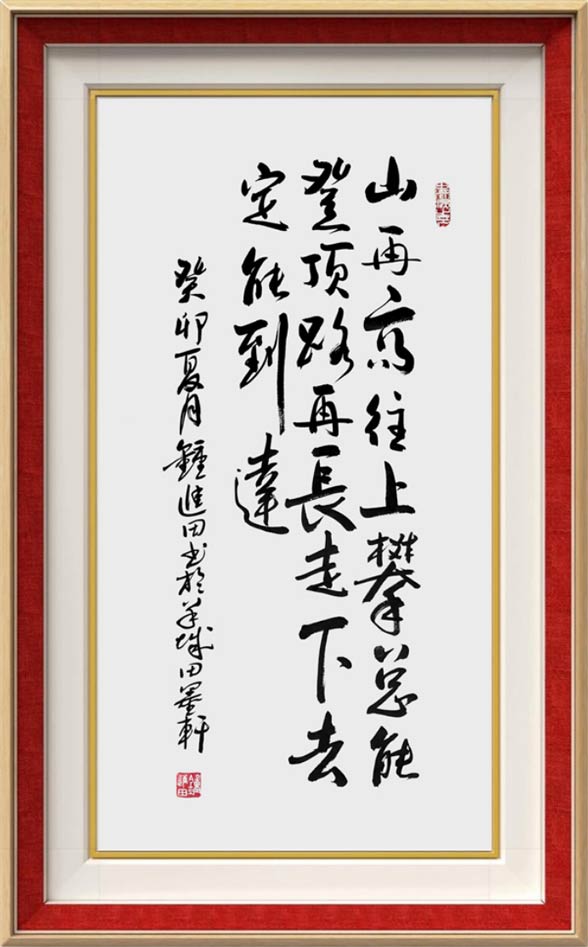 山再高往上攀总能
登顶路再長走下去
定能到達
癸卯夏月鐘進田书於羊城田墨軒